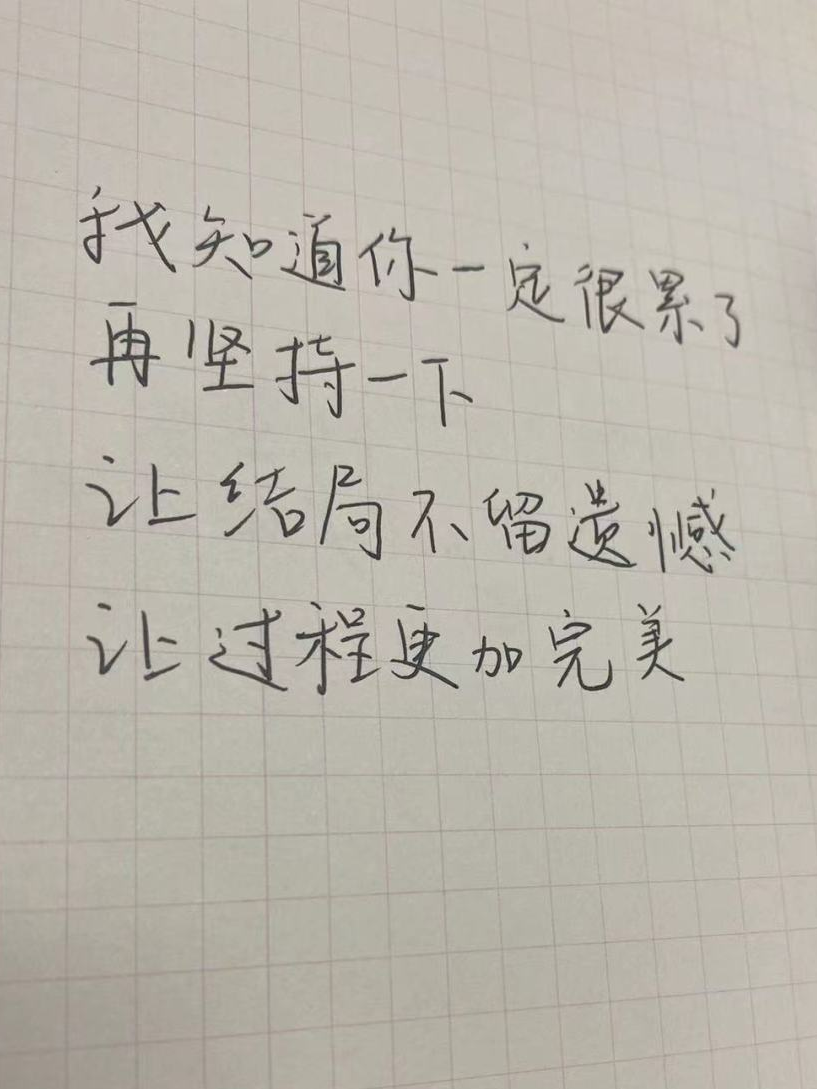 我知道你一定很累了
再坚持一下
让结局不留遗憾
让过程更加完美